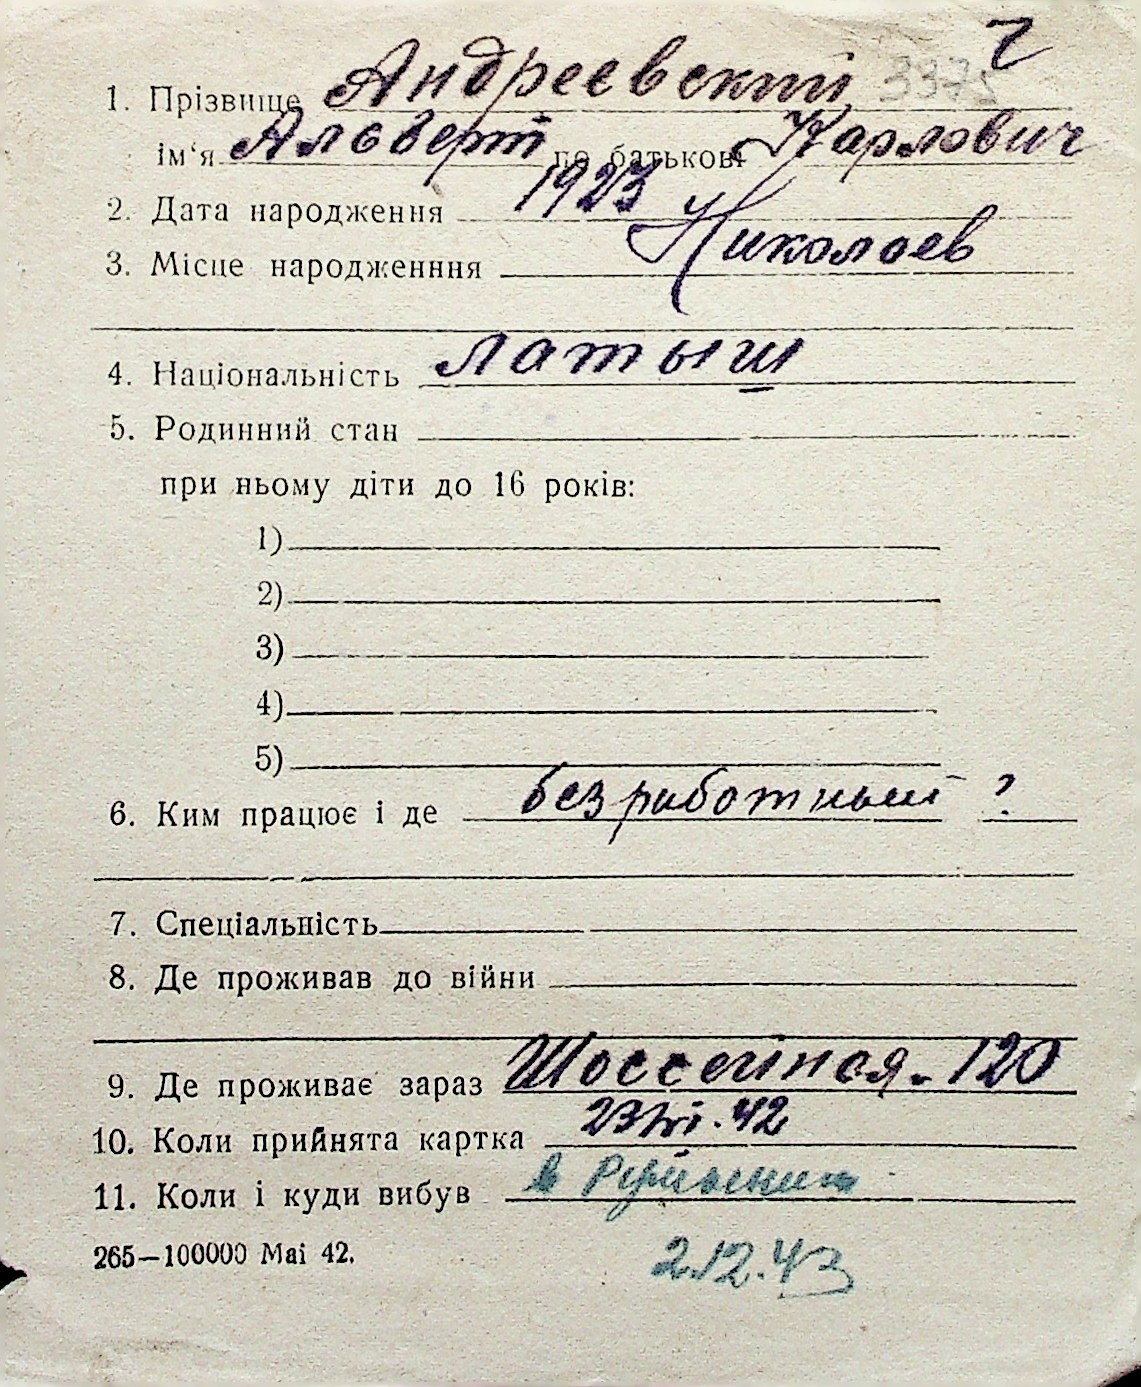 2
1. Прізвище Андреевский 3375
ім'я Альберт по батькові Карлович
2. Дата народження 1923
3. Місце народженння Николаев
4. Національність латыш
5. Родинний стан
при ньому діти до 16 років:
1)
2)
3)
4)
5)
6. Ким працює і де безработный ?
7. Спеціальність
8. Де проживав до війни
9. Де проживає зараз Шоссейная. 120
10. Коли прийнята картка 23/VI. 42
11. Коли і куди вибув в
265—100000 Mai 42.
2.12.43